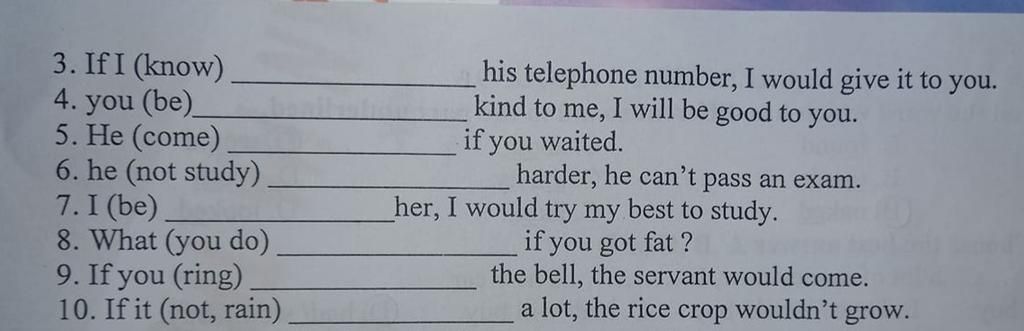 3. If I (know) ____________ his telephone number, I would give it to you.
4. you (be)____________ kind to me, I will be good to you.
5. He (come) ____________ if you waited.
6. he (not study) ____________ harder, he can't pass an exam.
7. I (be) ____________her, I would try my best to study.
8. What (you do) ____________ if you got fat ?
9. If you (ring) ____________ the bell, the servant would come.
10. If it (not, rain) ____________ a lot, the rice crop wouldn't grow.